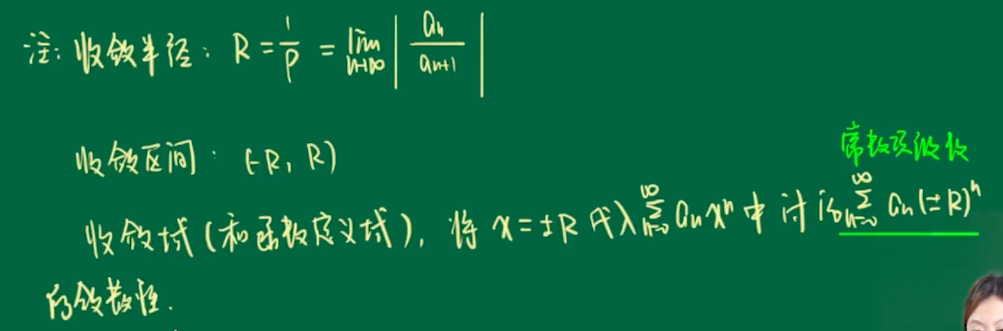 注: 收敛半径: R = 1/ρ = lim n→∞ | an / an+1 |
收敛区间: (-R, R)
常数项级数
收敛域 (和函数定义域), 将 x = ±R 代入 ∞∑n=0 an x^n 中讨论 ∞∑n=0 an (±R)^n
的敛散性.